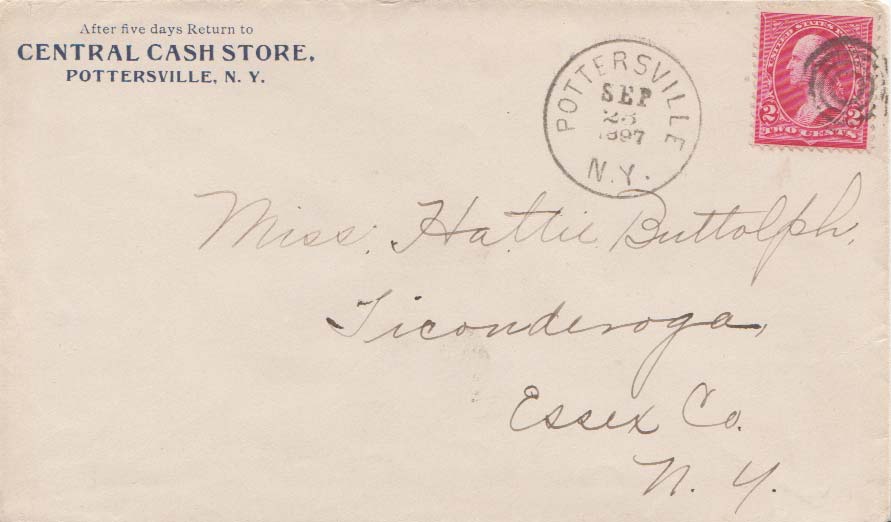 After five days Return to
CENTRAL CASH STORE,
POTTERSVILLE, N. Y.
POTTERSVILLE
SEP
23
1897
N.Y.
UNITED STATES
2 2
TWO CENTS
Miss. Hattie Buttolph,
Ticonderoga,
Essex Co.
N. Y.